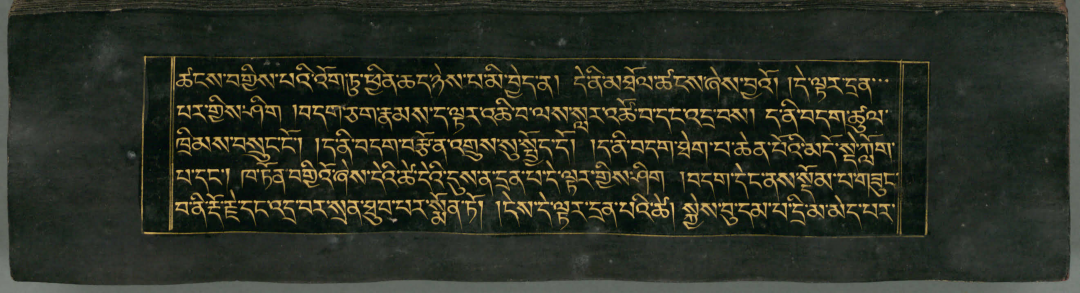 ཚངས་བགྱིས་པའི་འོག་ཏུ་ཕྱིན་ཆད་ཉེས་པ་མི་བྱེད་ན། དེ་ནི་མཐོལ་ཚངས་ཞེས་བྱའོ། །དེ་ལྟར་དྲན་
པར་གྱིས་ཤིག །བདག་ཅག་རྣམས་ད་ལྟར་འཆི་བ་ལས་སླར་འཚོ་བ་དང་འདྲ་བས། ད་ནི་བདག་ཚུལ་
ཁྲིམས་བསྲུང་ངོ༌། །ད་ནི་བདག་བརྩོན་འགྲུས་སུ་སྤྱོད་དོ། །ད་ནི་བདག་ཐེག་པ་ཆེན་པོའི་མདོ་སྡེ་ཀློག་
པ་དང༌། ཁ་ཏོན་བགྱིའོ་ཞེས་དེའི་ཚེ་དེའི་དུས་ན་དྲན་པ་དེ་ལྟར་གྱིས་ཤིག །བདག་དེང་ནས་སྡོམ་པ་གཟུང་
བ་ནི་རྡོ་རྗེ་དང་འདྲ་བར་སྲན་ཐུབ་པར་སྨོན་ཏོ། །དེས་དེ་ལྟར་དྲན་པའི་ཚེ། སྐྱེས་བུ་དམ་པ་དྲི་མ་མེད་པར་